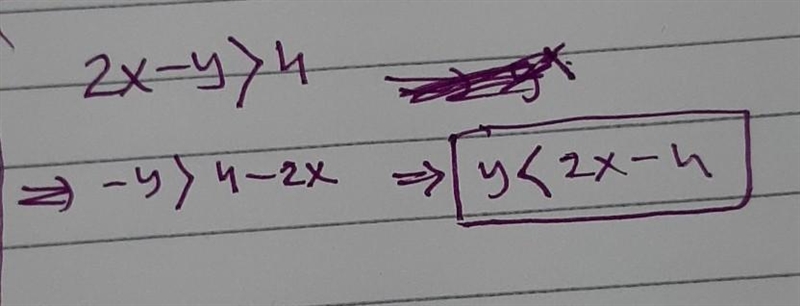 2x-y>4
⇒ -y>4-2x ⇒ y<2x-4